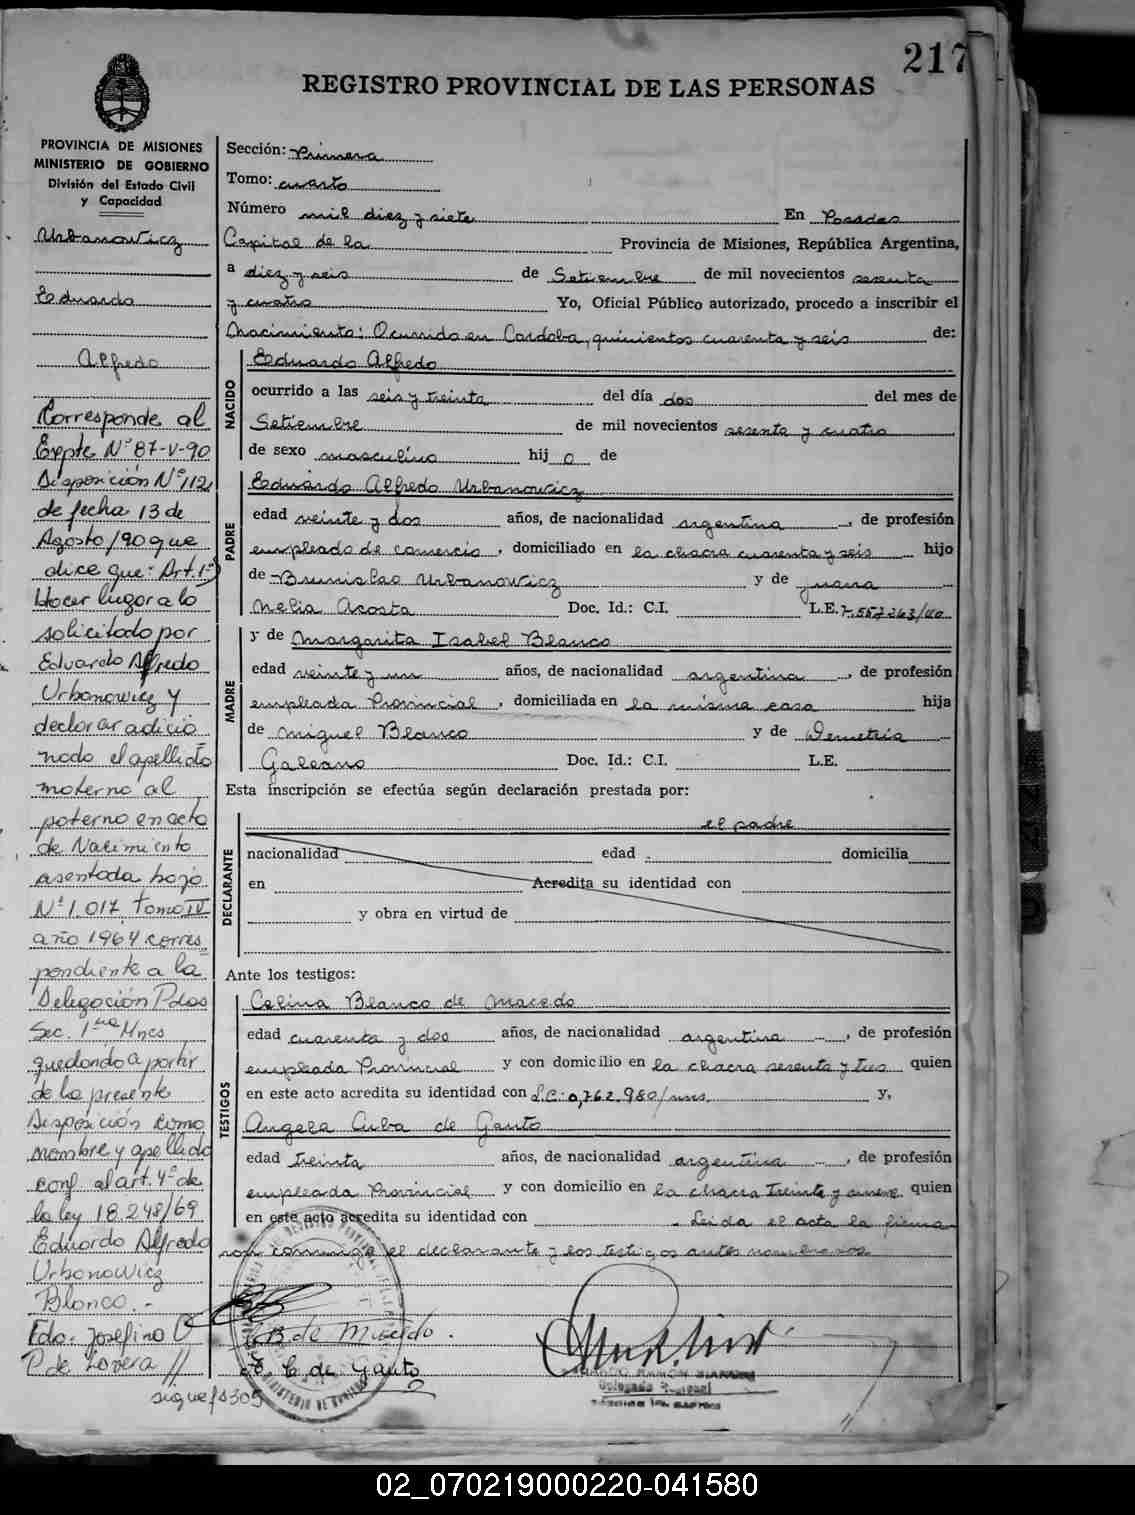 217
REGISTRO PROVINCIAL DE LAS PERSONAS
PROVINCIA DE MISIONES
MINISTERIO DE GOBIERNO
División del Estado Civil
y Capacidad
Urbanowicz
Eduardo
Alfredo
Corresponde al
Expte Nº 87-V-90
Disposición Nº 1121
de fecha 13 de
Agosto/90 que
dice que: Art. 1º)
Hacer lugar a lo
solicitado por
Eduardo Alfredo
Urbanowicz y
declarar adicio
nado el apellido
materno al
paterno en acta
de Nacimiento
asentada bajo
Nº 1.017, tomo IV
año 1964 corres
pondiente a la
Delegación Pdas
Sec. 1ra Mnes
quedando a partir
de la presente
Disposición como
nombre y apellido
conf. al art. 4º de
la ley 18.248/69
Eduardo Alfredo
Urbanowicz
Blanco.-
Fdo: Josefina O
P. de Lovera //
sigue fs 305
Sección: Primera
Tomo: cuarto
Número mil diez y siete En Posadas
Capital de la Provincia de Misiones, República Argentina,
a diez y seis de Setiembre de mil novecientos sesenta
y cuatro Yo, Oficial Público autorizado, procedo a inscribir el
Nacimiento: Ocurrido en Cordoba, quinientos cuarenta y seis de:
NACIDO
Eduardo Alfredo
ocurrido a las seis y treinta del día dos del mes de
Setiembre de mil novecientos sesenta y cuatro
de sexo masculino hij o de
PADRE
Eduardo Alfredo Urbanowicz
edad veinte y dos años, de nacionalidad argentina, de profesión
empleado de comercio, domiciliado en la chacra cuarenta y seis hijo
de Brunislao Urbanowicz y de Juana
Nelia Acosta Doc. Id.: C.I. L.E. 7.557.263/uo
MADRE
y de Margarita Isabel Blanco
edad veinte y un años, de nacionalidad argentina, de profesión
empleada Provincial, domiciliada en la misma casa hija
de Miguel Blanco y de Demetria
Galeano Doc. Id.: C.I. L.E.
Esta inscripción se efectúa según declaración prestada por:
DECLARANTE
el padre
nacionalidad edad domicilia
en Acredita su identidad con
y obra en virtud de
Ante los testigos:
TESTIGOS
Celina Blanco de Macedo
edad cuarenta y dos años, de nacionalidad argentina, de profesión
empleada Provincial y con domicilio en la chacra sesenta y tres quien
en este acto acredita su identidad con L.C: 0,762.980/mns. y,
Angela Cuba de Gauto
edad treinta años, de nacionalidad argentina, de profesión
empleada Provincial y con domicilio en la chacra Treinta y nueve quien
en este acto acredita su identidad con Leida el acta la firma
ron conmigo el declarante y los testigos antes nombrados
B. de Macedo.
C de Gauto
RAMON
Delegado
02_070219000220-041580